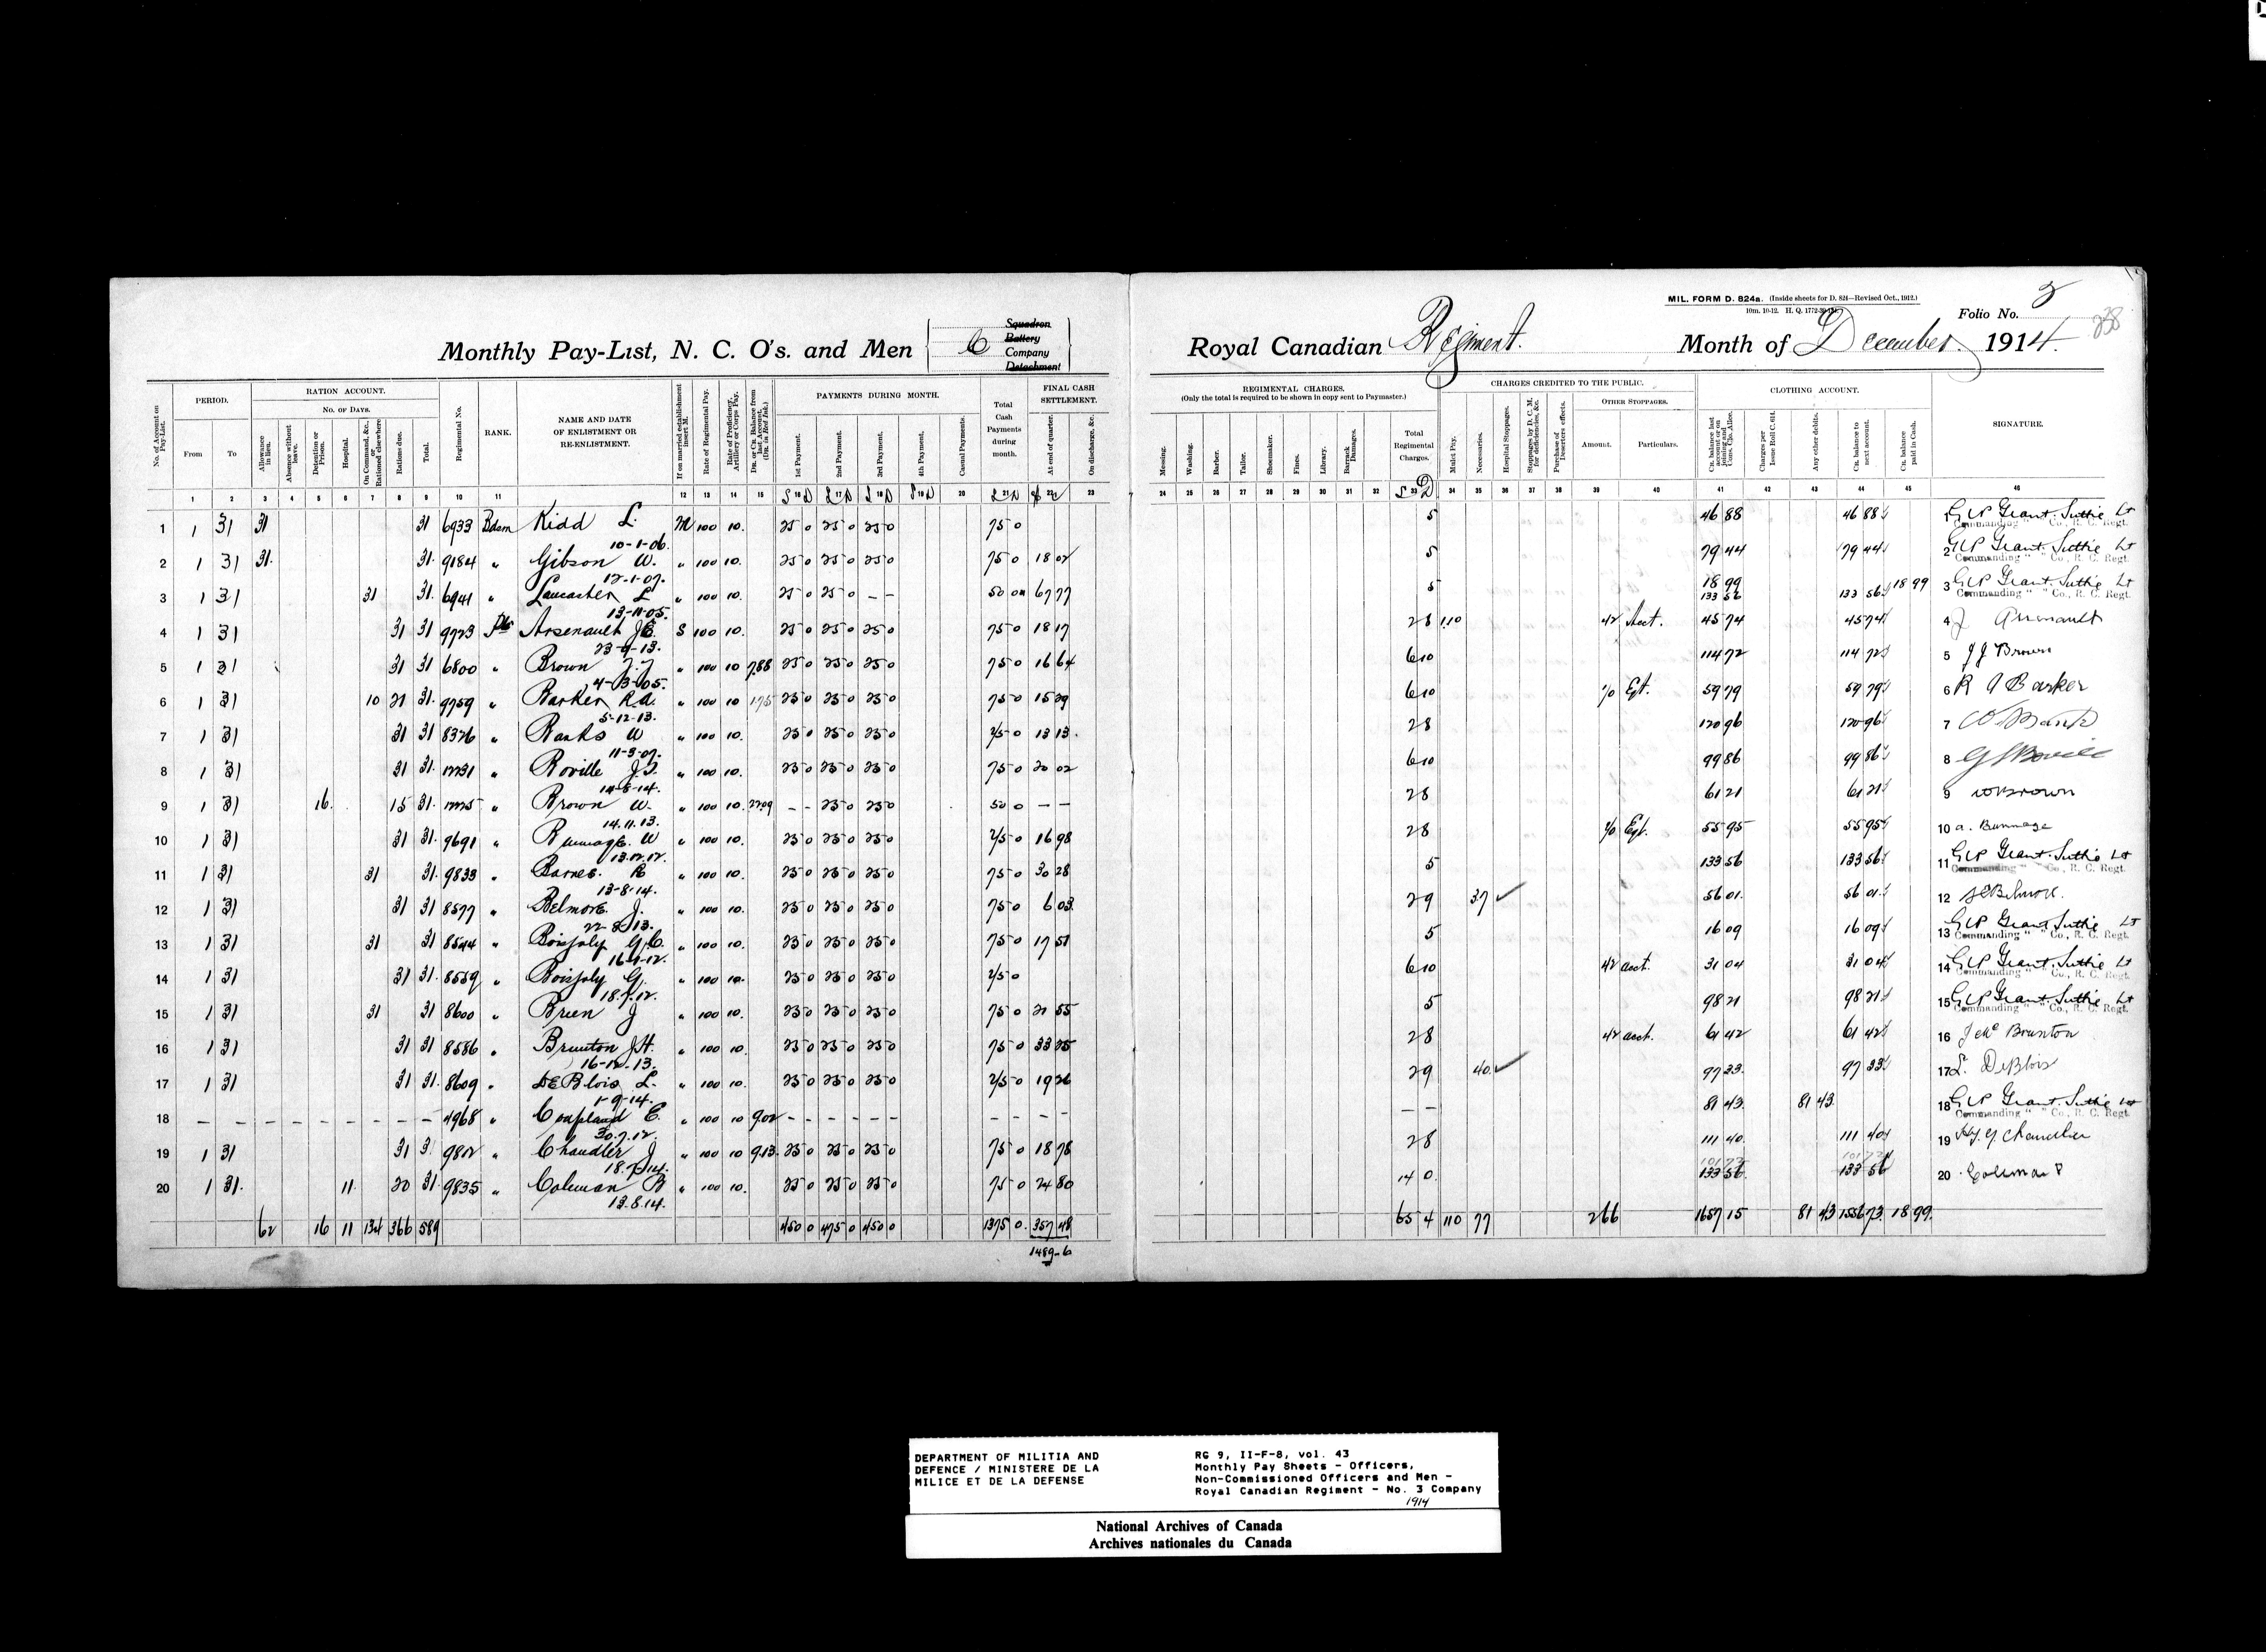 MIL. FORM D. 824a. (Inside sheets for D. 824—Revised Oct., 1912.)
10m. 10-12. H. Q. 1772-39-
Folio No. 3
238
Monthly Pay-List, N. C. O's. and Men
Squadron
Battery
C Company
Detachment
Royal Canadian Regiment. Month of December 1914.
No. of Account on Pay-List.
PERIOD.
From
To
RATION ACCOUNT.
No. of Days.
Allowance in lieu.
Absence without leave.
Detention or Prison.
Hospital.
On Command, &c., or Rationed elsewhere
Rations due.
Total.
Regimental No.
RANK.
NAME AND DATE OF ENLISTMENT OR RE-ENLISTMENT.
If on married establishment insert M.
Rate of Regimental Pay.
Rate of Proficiency, Artillery or Corps Pay.
Dr. or Cr. Balance from last Account. (Dr. in Red Ink.)
PAYMENTS DURING MONTH.
1st Payment.
2nd Payment.
3rd Payment.
4th Payment.
Casual Payments.
Total Cash Payments during month.
FINAL CASH SETTLEMENT.
At end of quarter.
On discharge, &c.
REGIMENTAL CHARGES.
(Only the total is required to be shown in copy sent to Paymaster.)
Messing.
Washing.
Barber.
Tailor.
Shoemaker.
Fines.
Library.
Barrack Damages.
Total Regimental Charges.
CHARGES CREDITED TO THE PUBLIC.
Mulct Pay.
Necessaries.
Hospital Stoppages.
Stoppages by D. C. M. for deficiencies, &c.
Purchase of Deserters effects.
Other Stoppages.
Amount.
Particulars.
CLOTHING ACCOUNT.
Cr. balance last account or on joining and Cons. Clo. Allce.
Charges per Issue Roll C. 614.
Any other debts.
Cr. balance to next account.
Cr. balance paid in Cash.
SIGNATURE.
1 2 3 4 5 6 7 8 9 10 11 12 13 14 15 16 17 18 19 20 21 22 23 24 25 26 27 28 29 30 31 32 33 34 35 36 37 38 39 40 41 42 43 44 45 46
1 1 31 31 31 6933 Bdsm Kidd L. M 100 10. 25 0 25 0 25 0 75 0 5 46 88 46 88 1 G.W.P. Grant-Suttie Lt
Commanding " " Co., R. C. Regt.
10-1-06.
2 1 31 31. 31. 9184 " Gibson W. " 100 10. 25 0 25 0 25 0 75 0 18 02 5 79 44 79 44 2 G.W.P. Grant-Suttie Lt
Commanding " " Co., R. C. Regt.
12-1-07.
3 1 31 31 31. 6941 " Lancaster L " 100 10. 25 0 25 0 – – 50 0 67 77 5 18 99 133 56 133 56 18 99 3 G.W.P. Grant-Suttie Lt
Commanding " " Co., R. C. Regt.
13-11-05.
4 1 31 31 31 9723 Pte Arsenault J.E. S 100 10. 25 0 25 0 25 0 75 0 18 17 2 8 1.10 42 Acct. 45 74 45 74 4 J Arsenault
23-9-13.
5 1 31 31 31 6800 " Brown J.J " 100 10 7.88 25 0 25 0 25 0 75 0 16 64 6 10 114 72 114 72 5 J J Brown
4-3-05.
6 1 31 10 21 31. 9759 " Barker R.A. " 100 10 1.75 25 0 25 0 25 0 75 0 15 29 6 10 70 Eqt. 59 79 59 79 6 R A Barker
5-12-13.
7 1 31 31 31 8326 " Banks W " 100 10. 25 0 25 0 25 0 75 0 13 13. 2 8 120 96 120 96 7 W Banks
11-3-07.
8 1 31 31 31. " Boville J.S. " 100 10. 25 0 25 0 25 0 75 0 20 02 6 10 99 86 99 86 8
14-8-14.
9 1 31 16. 15 31. " Brown W. " 100 10. 22.09 – – 25 0 25 0 50 0 – – 2 8 61 21 61 21 9 W Brown
14.11.13.
10 1 31 31 31. 9691 " Bummage W " 100 10. 25 0 25 0 25 0 75 0 16 98 2 8 70 Eqt. 55 95 55 95 10 a. Bummage
13.12.12.
11 1 31 31 31. 9833 " Barnes. R " 100 10. 25 0 25 0 25 0 75 0 30 28 5 133 56 133 56 11 G.W.P. Grant-Suttie Lt
Commanding Co., R. C. Regt.
13-8-14.
12 1 31 31 31 8577 " Belmore. J. " 100 10. 25 0 25 0 25 0 75 0 6 03 2 9 37 ✓ 56 01. 56 01. 12 J E Belmore.
22-8-13.
13 1 31 31 31 8544 " Boisjoly G.C. " 100 10. 25 0 25 0 25 0 75 0 17 51 5 16 09 16 09 13 G.W.P. Grant-Suttie Lt
Commanding " " Co., R. C. Regt.
16-1-12.
14 1 31 31 31. 8559 " Boisjoly G. " 100 10. 25 0 25 0 25 0 75 0 6 10 42 acct. 31 04 31 04 14 G.W.P. Grant-Suttie Lt
Commanding " " Co., R. C. Regt.
18.7.12.
15 1 31 31 31 8600 " Brien J " 100 10. 25 0 25 0 25 0 75 0 21 55 5 98 21 98 21 15 G.W.P. Grant-Suttie Lt
Commanding " " Co., R. C. Regt.
16 1 31 31 31 8586 " Brunton J.H. " 100 10. 25 0 25 0 25 0 75 0 33 25 2 8 42 acct. 61 42 61 42 16 Brunton
16-12-13.
17 1 31 31 31. 8609 " DeBlois L. " 100 10. 25 0 25 0 25 0 75 0 19 26 2 9 40. ✓ 97 33. 97 33 17 L. DeBlois
1-9-14.
18 – – – – – – – – – 4968 " Coupland E. " 100 10 9.02 – – – – – – – – – – – – 81 43. 81 43 18 G.W.P. Grant-Suttie Lt
Commanding " " Co., R. C. Regt.
30.7.12.
19 1 31 31 31 9812 " Chandler J " 100 10 9.13. 25 0 25 0 25 0 75 0 18 78 2 8 111 40. 111 40 19 Chandler
18.7.14.
20 1 31. 11. 20 31. 9835 " Coleman B " 100 10. 25 0 25 0 25 0 75 0 24 80 14 0 133 56. 133 56 20 Coleman
13.8.14.
62 16 11 134 366 589 450 0 475 0 450 0 1375 0. 357 48 65 4 1 10 77 2 66 1657 15 81 43 1556 73. 18 99.
1489-6
DEPARTMENT OF MILITIA AND
DEFENCE / MINISTERE DE LA
MILICE ET DE LA DEFENSE
RG 9, II-F-8, vol. 43
Monthly Pay Sheets - Officers,
Non-Commissioned Officers and Men -
Royal Canadian Regiment - No. 3 Company
1914
National Archives of Canada
Archives nationales du Canada